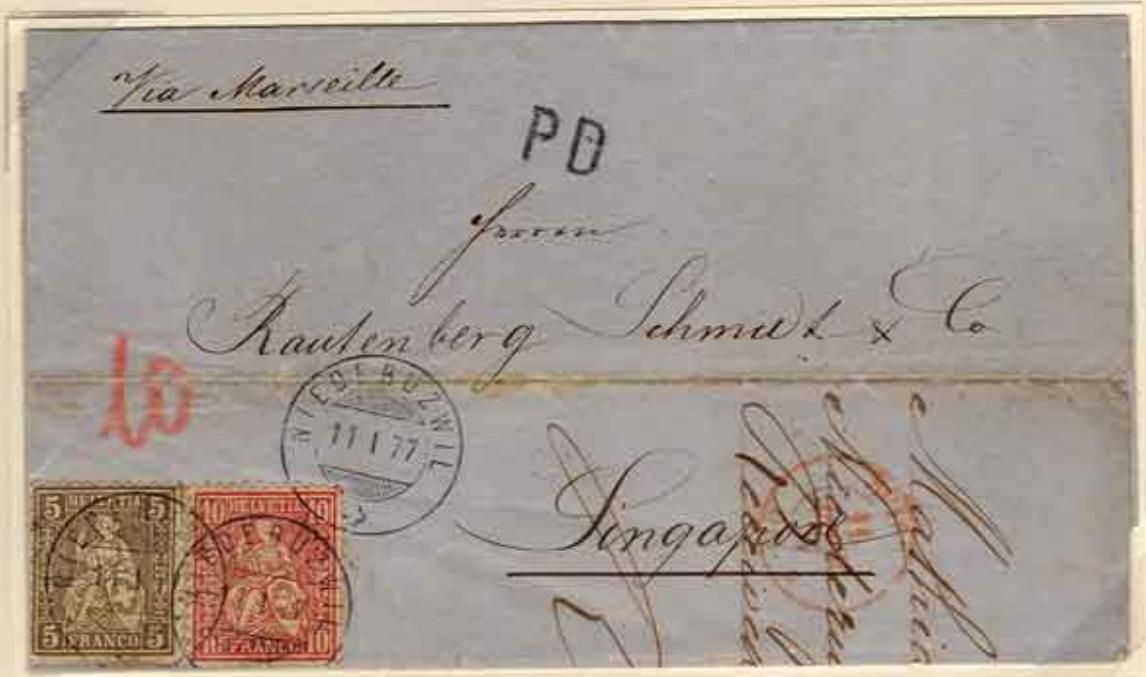 Via Marseille
PD
Herren
Rautenberg Schmidt & Co
10
NIEDERUZWIL
11 I 77
Singapore
5 HELVETIA 5
5 FRANCO 5
10 HELVETIA 10
10 FRANCO 10
NIEDERUZWIL